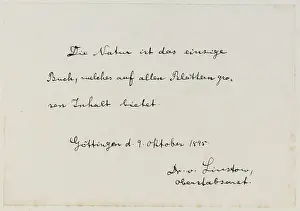 Die Natur ist das einzige
Buch, welches auf allen Blättern gro-
sen Inhalt bietet
Göttingen d. 9. Oktober 1895
Dr. v. Linstow,
Oberstabsarzt.